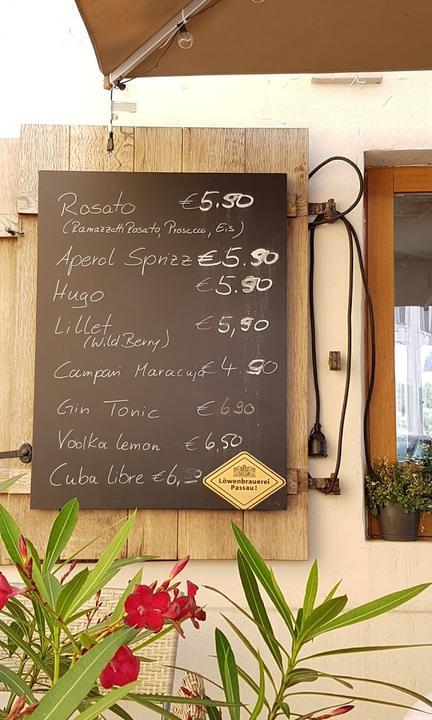 Rosato €5.90
(Ramazzotti Rosato, Prosecco, Eis)
Aperol Sprizz €5.90
Hugo €5.90
Lillet €5,90
(Wild Berry)
Campari Maracuja €4.90
Gin Tonic €6,90
Vodka lemon €6,50
Cuba libre €6,50
Löwenbrauerei
Passau!